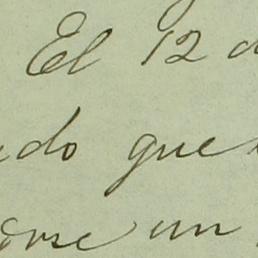 El 12 d
do que
orse un